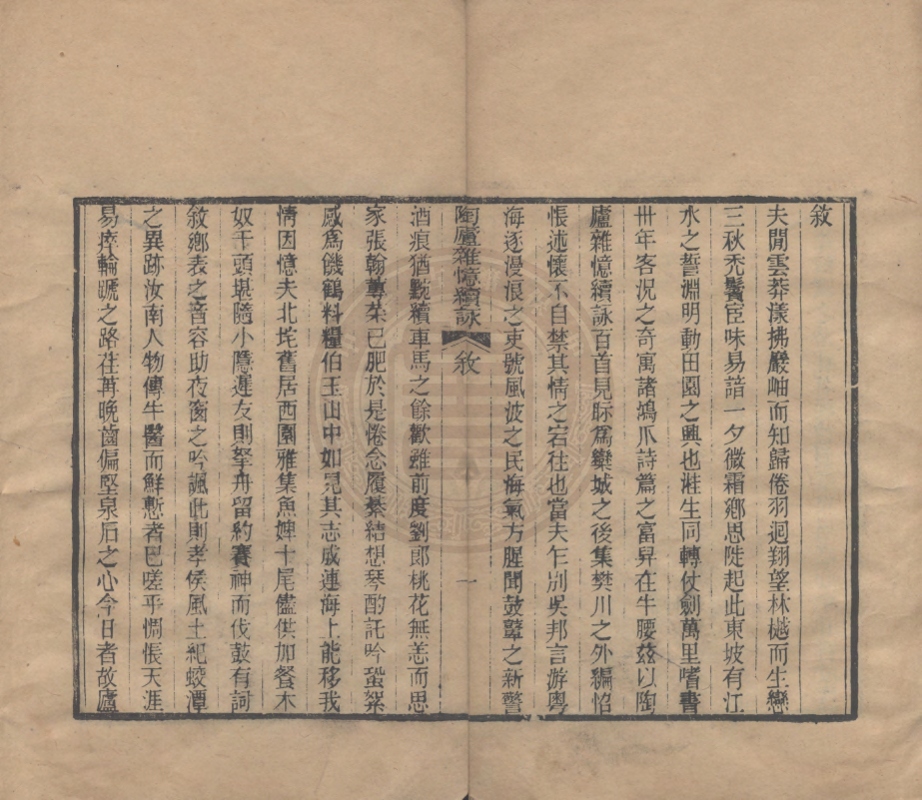 敘
夫閒雲莽漾拂巖岫而知歸倦羽迴翔望林樾而生戀
三秋禿鬢宦味易諳一夕微霜鄉思陡起此東坡有江
水之誓淵明動田園之興也淮生同轉仗劍萬里嗜書
卅年客況之奇寓諸鴻爪詩篇之富昇在牛腰茲以陶
廬雜憶續詠百首見眎爲欒城之後集樊川之外編怊
悵述懷不自禁其情之宕往也當夫乍別吳邦言游粵
海逐漫浪之叟號風波之民海氣方腥聞鼓鼙之新警
陶廬雜憶續詠 敘 一
酒痕猶黦續車馬之餘歡雖前度劉郎桃花無恙而思
家張翰蓴菜已肥於是惓念履綦結想琴酌託吟蛩絮
感爲饑鶴料糧伯玉山中如見其志成連海上能移我
情因憶夫北垞舊居西園雅集魚婢十尾儘供加餐木
奴千頭堪隨小隱遲友則拏舟留約賽神而伐鼓有詞
敘鄉表之音容助夜窗之吟諷此則孝侯風土紀蛟潭
之異跡汝南人物傳牛醫而鮮慙者已嗟乎惆悵天涯
易摧輪蹏之路荏苒晚齒偏堅泉石之心今日者故廬